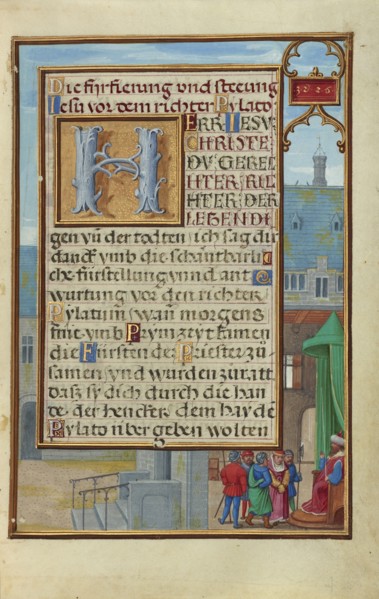 Die fürfierung vnd stellung
Iesu vor dem richter Pylato
HERR IESV
CHRISTE
DV GEREC
HTER RIC
HTER DER
LEBENDI
gen vñ der todten ich sag dir
danck vmb die schautbarli
che fürstellung vnnd ant
wurtung vor den richter
Pylatum, Wañ morgens
frue vmb Prymzeyt kamen
die Fürsten der Priester zů
samen vnd wurden zu ratt
dasz sy dich durch die han
de der hencker dem hayde
Pylato v̈ber geben wolten